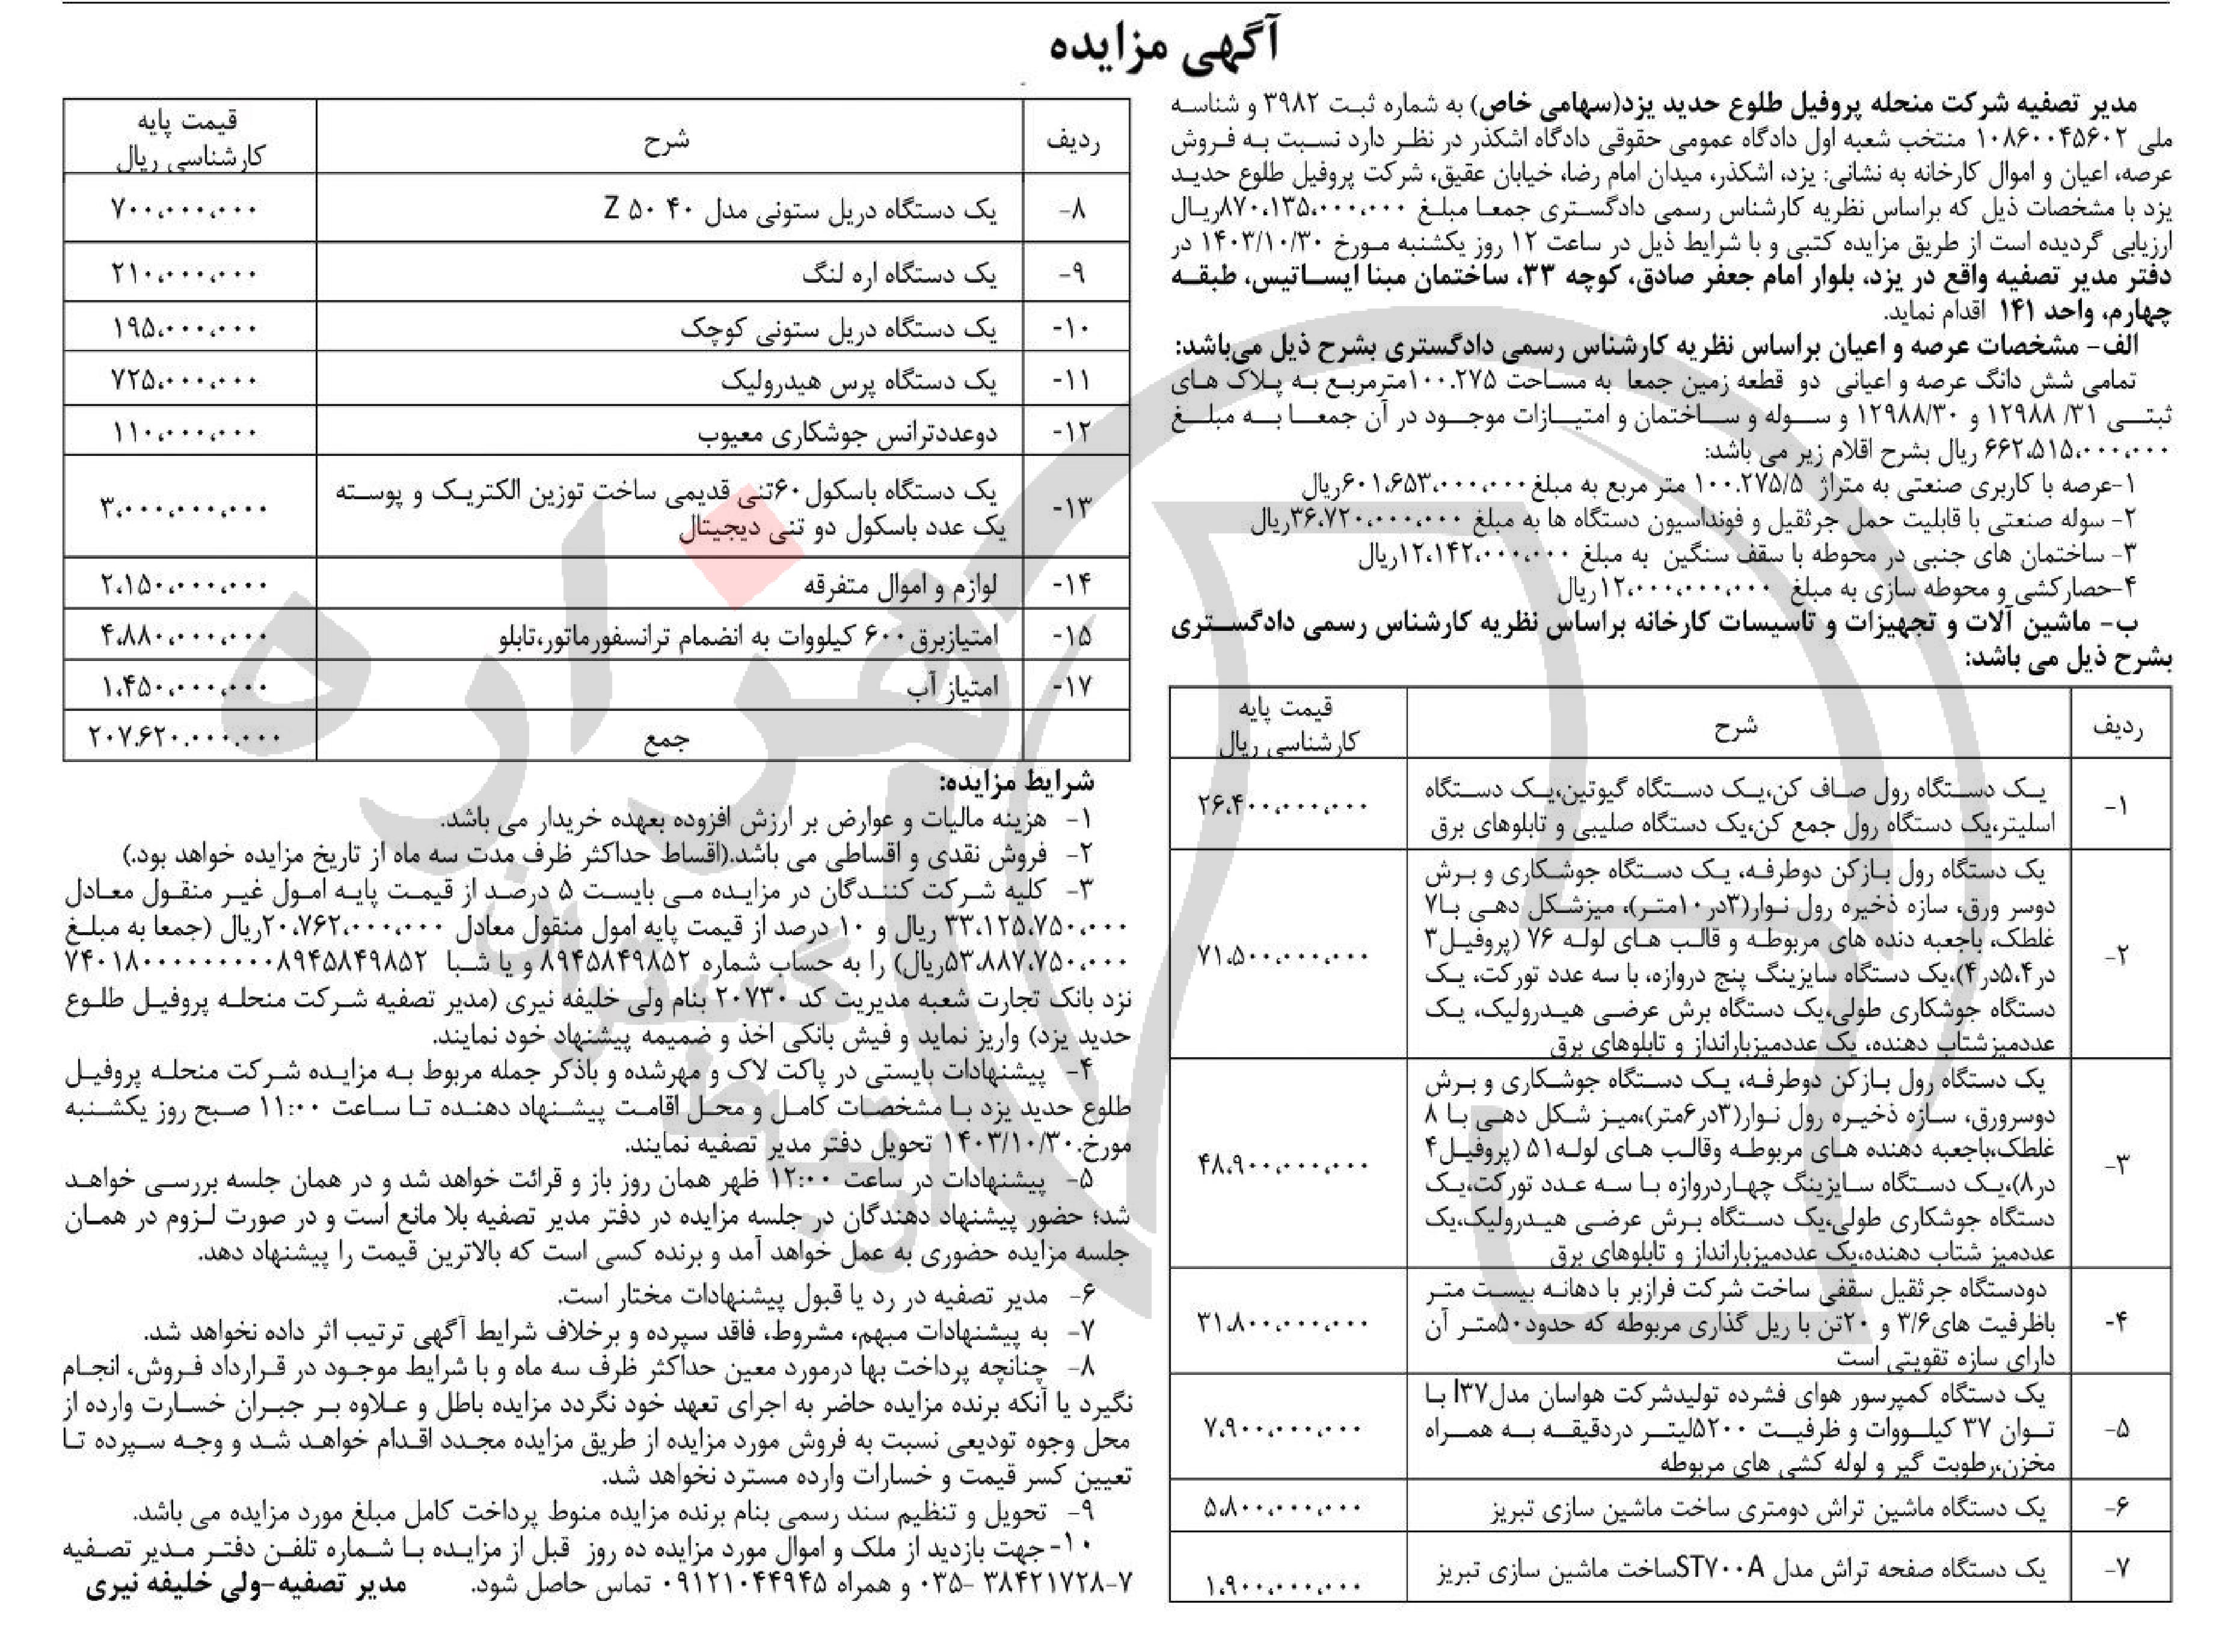 آگهی مزایده
مدیر تصفیه شرکت منحله پروفیل طلوع حدید یزد(سهامی خاص) به شماره ثبت ۳۹۸۲ و شناسه
ملی ۱۰۸۶۰۰۴۵۶۰۲ منتخب شعبه اول دادگاه عمومی حقوقی دادگاه اشکذر در نظر دارد نسبت به فروش
عرصه، اعیان و اموال کارخانه به نشانی: یزد، اشکذر، میدان امام رضا، خیابان عقیق، شرکت پروفیل طلوع حدید
یزد با مشخصات ذیل که براساس نظریه کارشناس رسمی دادگستری جمعا مبلغ ۸۷۰،۱۳۵،۰۰۰،۰۰۰ریال
ارزیابی گردیده است از طریق مزایده کتبی و با شرایط ذیل در ساعت ۱۲ روز یکشنبه مورخ ۱۴۰۳/۱۰/۳۰ در
دفتر مدیر تصفیه واقع در یزد، بلوار امام جعفر صادق، کوچه ۳۳، ساختمان مبنا ایساتیس، طبقه
چهارم، واحد ۱۴۱ اقدام نماید.
الف- مشخصات عرصه و اعیان براساس نظریه کارشناس رسمی دادگستری بشرح ذیل می‌باشد:
تمامی شش دانگ عرصه و اعیانی دو قطعه زمین جمعا به مساحت ۱۰۰.۲۷۵مترمربع به پلاک های
ثبتی ۳۱/ ۱۲۹۸۸ و ۱۲۹۸۸/۳۰ و سوله و ساختمان و امتیازات موجود در آن جمعا به مبلغ
۶۶۲،۵۱۵،۰۰۰،۰۰۰ ریال بشرح اقلام زیر می باشد:
۱-عرصه با کاربری صنعتی به متراژ ۱۰۰.۲۷۵/۵ متر مربع به مبلغ۶۰۱،۶۵۳،۰۰۰،۰۰۰ریال
۲- سوله صنعتی با قابلیت حمل جرثقیل و فونداسیون دستگاه ها به مبلغ ۳۶،۷۲۰،۰۰۰،۰۰۰ریال
۳- ساختمان های جنبی در محوطه با سقف سنگین به مبلغ ۱۲،۱۴۲،۰۰۰،۰۰۰ریال
۴-حصارکشی و محوطه سازی به مبلغ ۱۲،۰۰۰،۰۰۰،۰۰۰ریال
ب- ماشین آلات و تجهیزات و تاسیسات کارخانه براساس نظریه کارشناس رسمی دادگستری
بشرح ذیل می باشد:
ردیف شرح قیمت پایه
کارشناسی ریال
۱- یک دستگاه رول صاف کن،یک دستگاه گیوتین،یک دستگاه
اسلیتر،یک دستگاه رول جمع کن،یک دستگاه صلیبی و تابلوهای برق ۲۶،۴۰۰،۰۰۰،۰۰۰
یک دستگاه رول بازکن دوطرفه، یک دستگاه جوشکاری و برش
دوسر ورق، سازه ذخیره رول نوار(۳در۱۰متر)، میزشکل دهی با۷
غلطک، باجعبه دنده های مربوطه و قالب های لوله ۷۶ (پروفیل۳
۲- در۵،۴در۴)،یک دستگاه سایزینگ پنج دروازه، با سه عدد تورکت، یک ۷۱،۵۰۰،۰۰۰،۰۰۰
دستگاه جوشکاری طولی،یک دستگاه برش عرضی هیدرولیک، یک
عددمیزشتاب دهنده، یک عددمیزبارانداز و تابلوهای برق
یک دستگاه رول بازکن دوطرفه، یک دستگاه جوشکاری و برش
دوسرورق، سازه ذخیره رول نوار(۳در۶متر)،میز شکل دهی با ۸
غلطک،باجعبه دهنده های مربوطه وقالب های لوله۵۱ (پروفیل۴
۳- در۸)،یک دستگاه سایزینگ چهاردروازه با سه عدد تورکت،یک ۴۸،۹۰۰،۰۰۰،۰۰۰
دستگاه جوشکاری طولی،یک دستگاه برش عرضی هیدرولیک،یک
عددمیز شتاب دهنده،یک عددمیزبارانداز و تابلوهای برق
دودستگاه جرثقیل سقفی ساخت شرکت فرازبر با دهانه بیست متر
۴- باظرفیت های۳/۶ و ۲۰تن با ریل گذاری مربوطه که حدود۵۰متر آن ۳۱،۸۰۰،۰۰۰،۰۰۰
دارای سازه تقویتی است
یک دستگاه کمپرسور هوای فشرده تولیدشرکت هواسان مدلI۳۷ با
۵- توان ۳۷ کیلووات و ظرفیت ۵۲۰۰لیتر دردقیقه به همراه ۷،۹۰۰،۰۰۰،۰۰۰
مخزن،رطوبت گیر و لوله کشی های مربوطه
۶- یک دستگاه ماشین تراش دومتری ساخت ماشین سازی تبریز ۵،۸۰۰،۰۰۰،۰۰۰
۷- یک دستگاه صفحه تراش مدل ST۷۰۰Aساخت ماشین سازی تبریز ۱،۹۰۰،۰۰۰،۰۰۰
ردیف شرح قیمت پایه
کارشناسی ریال
۸- یک دستگاه دریل ستونی مدل ۴۰ ۵۰ Z ۷۰۰،۰۰۰،۰۰۰
۹- یک دستگاه اره لنگ ۲۱۰،۰۰۰،۰۰۰
۱۰- یک دستگاه دریل ستونی کوچک ۱۹۵،۰۰۰،۰۰۰
۱۱- یک دستگاه پرس هیدرولیک ۷۲۵،۰۰۰،۰۰۰
۱۲- دوعددترانس جوشکاری معیوب ۱۱۰،۰۰۰،۰۰۰
۱۳- یک دستگاه باسکول۶۰تنی قدیمی ساخت توزین الکتریک و پوسته
یک عدد باسکول دو تنی دیجیتال ۳،۰۰۰،۰۰۰،۰۰۰
۱۴- لوازم و اموال متفرقه ۲،۱۵۰،۰۰۰،۰۰۰
۱۵- امتیازبرق۶۰۰ کیلووات به انضمام ترانسفورماتور،تابلو ۴،۸۸۰،۰۰۰،۰۰۰
۱۷- امتیاز آب ۱،۴۵۰،۰۰۰،۰۰۰
جمع ۲۰۷،۶۲۰،۰۰۰،۰۰۰
شرایط مزایده:
۱- هزینه مالیات و عوارض بر ارزش افزوده بعهده خریدار می باشد.
۲- فروش نقدی و اقساطی می باشد.(اقساط حداکثر ظرف مدت سه ماه از تاریخ مزایده خواهد بود.)
۳- کلیه شرکت کنندگان در مزایده می بایست ۵ درصد از قیمت پایه امول غیر منقول معادل
۳۳،۱۲۵،۷۵۰،۰۰۰ ریال و ۱۰ درصد از قیمت پایه امول منقول معادل ۲۰،۷۶۲،۰۰۰،۰۰۰ریال (جمعا به مبلغ
۵۳،۸۸۷،۷۵۰،۰۰۰ریال) را به حساب شماره ۸۹۴۵۸۴۹۸۵۲ و یا شبا ۷۴۰۱۸۰۰۰۰۰۰۰۰۰۰۸۹۴۵۸۴۹۸۵۲
نزد بانک تجارت شعبه مدیریت کد ۲۰۷۳۰ بنام ولی خلیفه نیری (مدیر تصفیه شرکت منحله پروفیل طلوع
حدید یزد) واریز نماید و فیش بانکی اخذ و ضمیمه پیشنهاد خود نمایند.
۴- پیشنهادات بایستی در پاکت لاک و مهرشده و باذکر جمله مربوط به مزایده شرکت منحله پروفیل
طلوع حدید یزد با مشخصات کامل و محل اقامت پیشنهاد دهنده تا ساعت ۱۱:۰۰ صبح روز یکشنبه
مورخ۱۴۰۳/۱۰/۳۰ تحویل دفتر مدیر تصفیه نمایند.
۵- پیشنهادات در ساعت ۱۲:۰۰ ظهر همان روز باز و قرائت خواهد شد و در همان جلسه بررسی خواهد
شد؛ حضور پیشنهاد دهندگان در جلسه مزایده در دفتر مدیر تصفیه بلا مانع است و در صورت لزوم در همان
جلسه مزایده حضوری به عمل خواهد آمد و برنده کسی است که بالاترین قیمت را پیشنهاد دهد.
۶- مدیر تصفیه در رد یا قبول پیشنهادات مختار است.
۷- به پیشنهادات مبهم، مشروط، فاقد سپرده و برخلاف شرایط آگهی ترتیب اثر داده نخواهد شد.
۸- چنانچه پرداخت بها درمورد معین حداکثر ظرف سه ماه و با شرایط موجود در قرارداد فروش، انجام
نگیرد یا آنکه برنده مزایده حاضر به اجرای تعهد خود نگردد مزایده باطل و علاوه بر جبران خسارت وارده از
محل وجوه تودیعی نسبت به فروش مورد مزایده از طریق مزایده مجدد اقدام خواهد شد و وجه سپرده تا
تعیین کسر قیمت و خسارات وارده مسترد نخواهد شد.
۹- تحویل و تنظیم سند رسمی بنام برنده مزایده منوط پرداخت کامل مبلغ مورد مزایده می باشد.
۱۰-جهت بازدید از ملک و اموال مورد مزایده ده روز قبل از مزایده با شماره تلفن دفتر مدیر تصفیه
۷-۳۸۴۲۱۷۲۸ -۰۳۵ و همراه ۰۹۱۲۱۰۴۴۹۴۵ تماس حاصل شود. مدیر تصفیه-ولی خلیفه نیری
هزاره